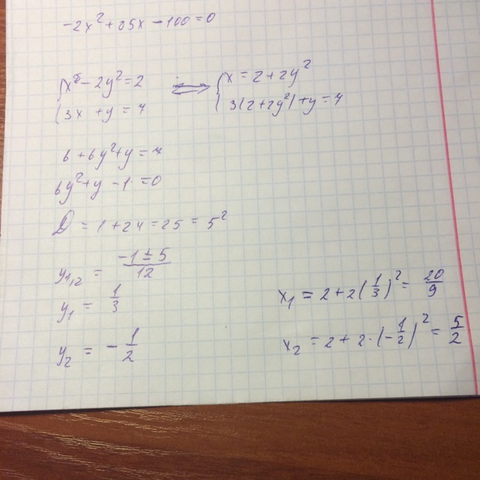 -2x² + 35x - 100 = 0
{ x - 2y² = 2 ⟺ { x = 2 + 2y²
{ 3x + y = 7 { 3(2 + 2y²) + y = 7
6 + 6y² + y = 7
6y² + y - 1 = 0
D = 1 + 24 = 25 = 5²
y₁,₂ = (-1 ± 5)/12
y₁ = 1/3
y₂ = -1/2
x₁ = 2 + 2(1/3)² = 20/9
x₂ = 2 + 2·(-1/2)² = 5/2